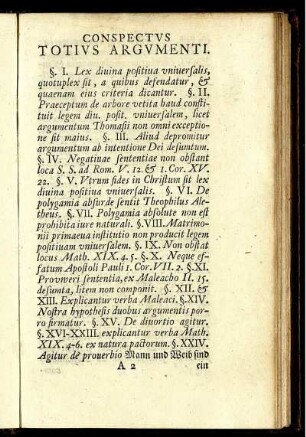 CONSPECTVS
TOTIVS ARGVMENTI.
§. I. Lex diuina positiua vniuersalis,
quotuplex sit, a quibus defendatur, &
quaenam eius criteria dicantur. §. II.
Praeceptum de arbore vetita haud consti-
tuit legem diu. posit. vniuersalem, licet
argumentum Thomasii non omni exceptio-
ne sit maius. §. III. Aliud depromitur
argumentum ab intentione Dei desumtum.
§. IV. Negatiuae sententiae non obstant
loca S. S. ad Rom. V. 12. & 1. Cor. XV.
22. §. V. Vtrum fides in Christum sit lex
diuina positiua vniuersalis. §. VI. De
polygamia absurde sentit Theophilus Ale-
theus. §. VII. Polygamia absolute non est
prohibita iure naturali. §. VIII. Matrimo-
nii primaeua institutio non producit legem
positiuam vniuersalem. §. IX. Non obstat
locus Math. XIX. 4. 5. §. X. Neque ef-
fatum Apostoli Pauli 1. Cor. VII. 2. §. XI.
Prouocatur sententia, ex Maleacho II. 15.
desumta, litem non componit. §. XII. &
XIII. Explicantur verba Maleaci. §. XIV.
Nostra hypothesis duobus argumentis por-
ro firmatur. §. XV. De diuortio agitur.
§. XVI-XXIII. explicantur verba Math.
XIX. 4-6. ex natura pactorum. §. XXIV.
Agitur de prouerbio Mann und Weib sind
A 2 ein